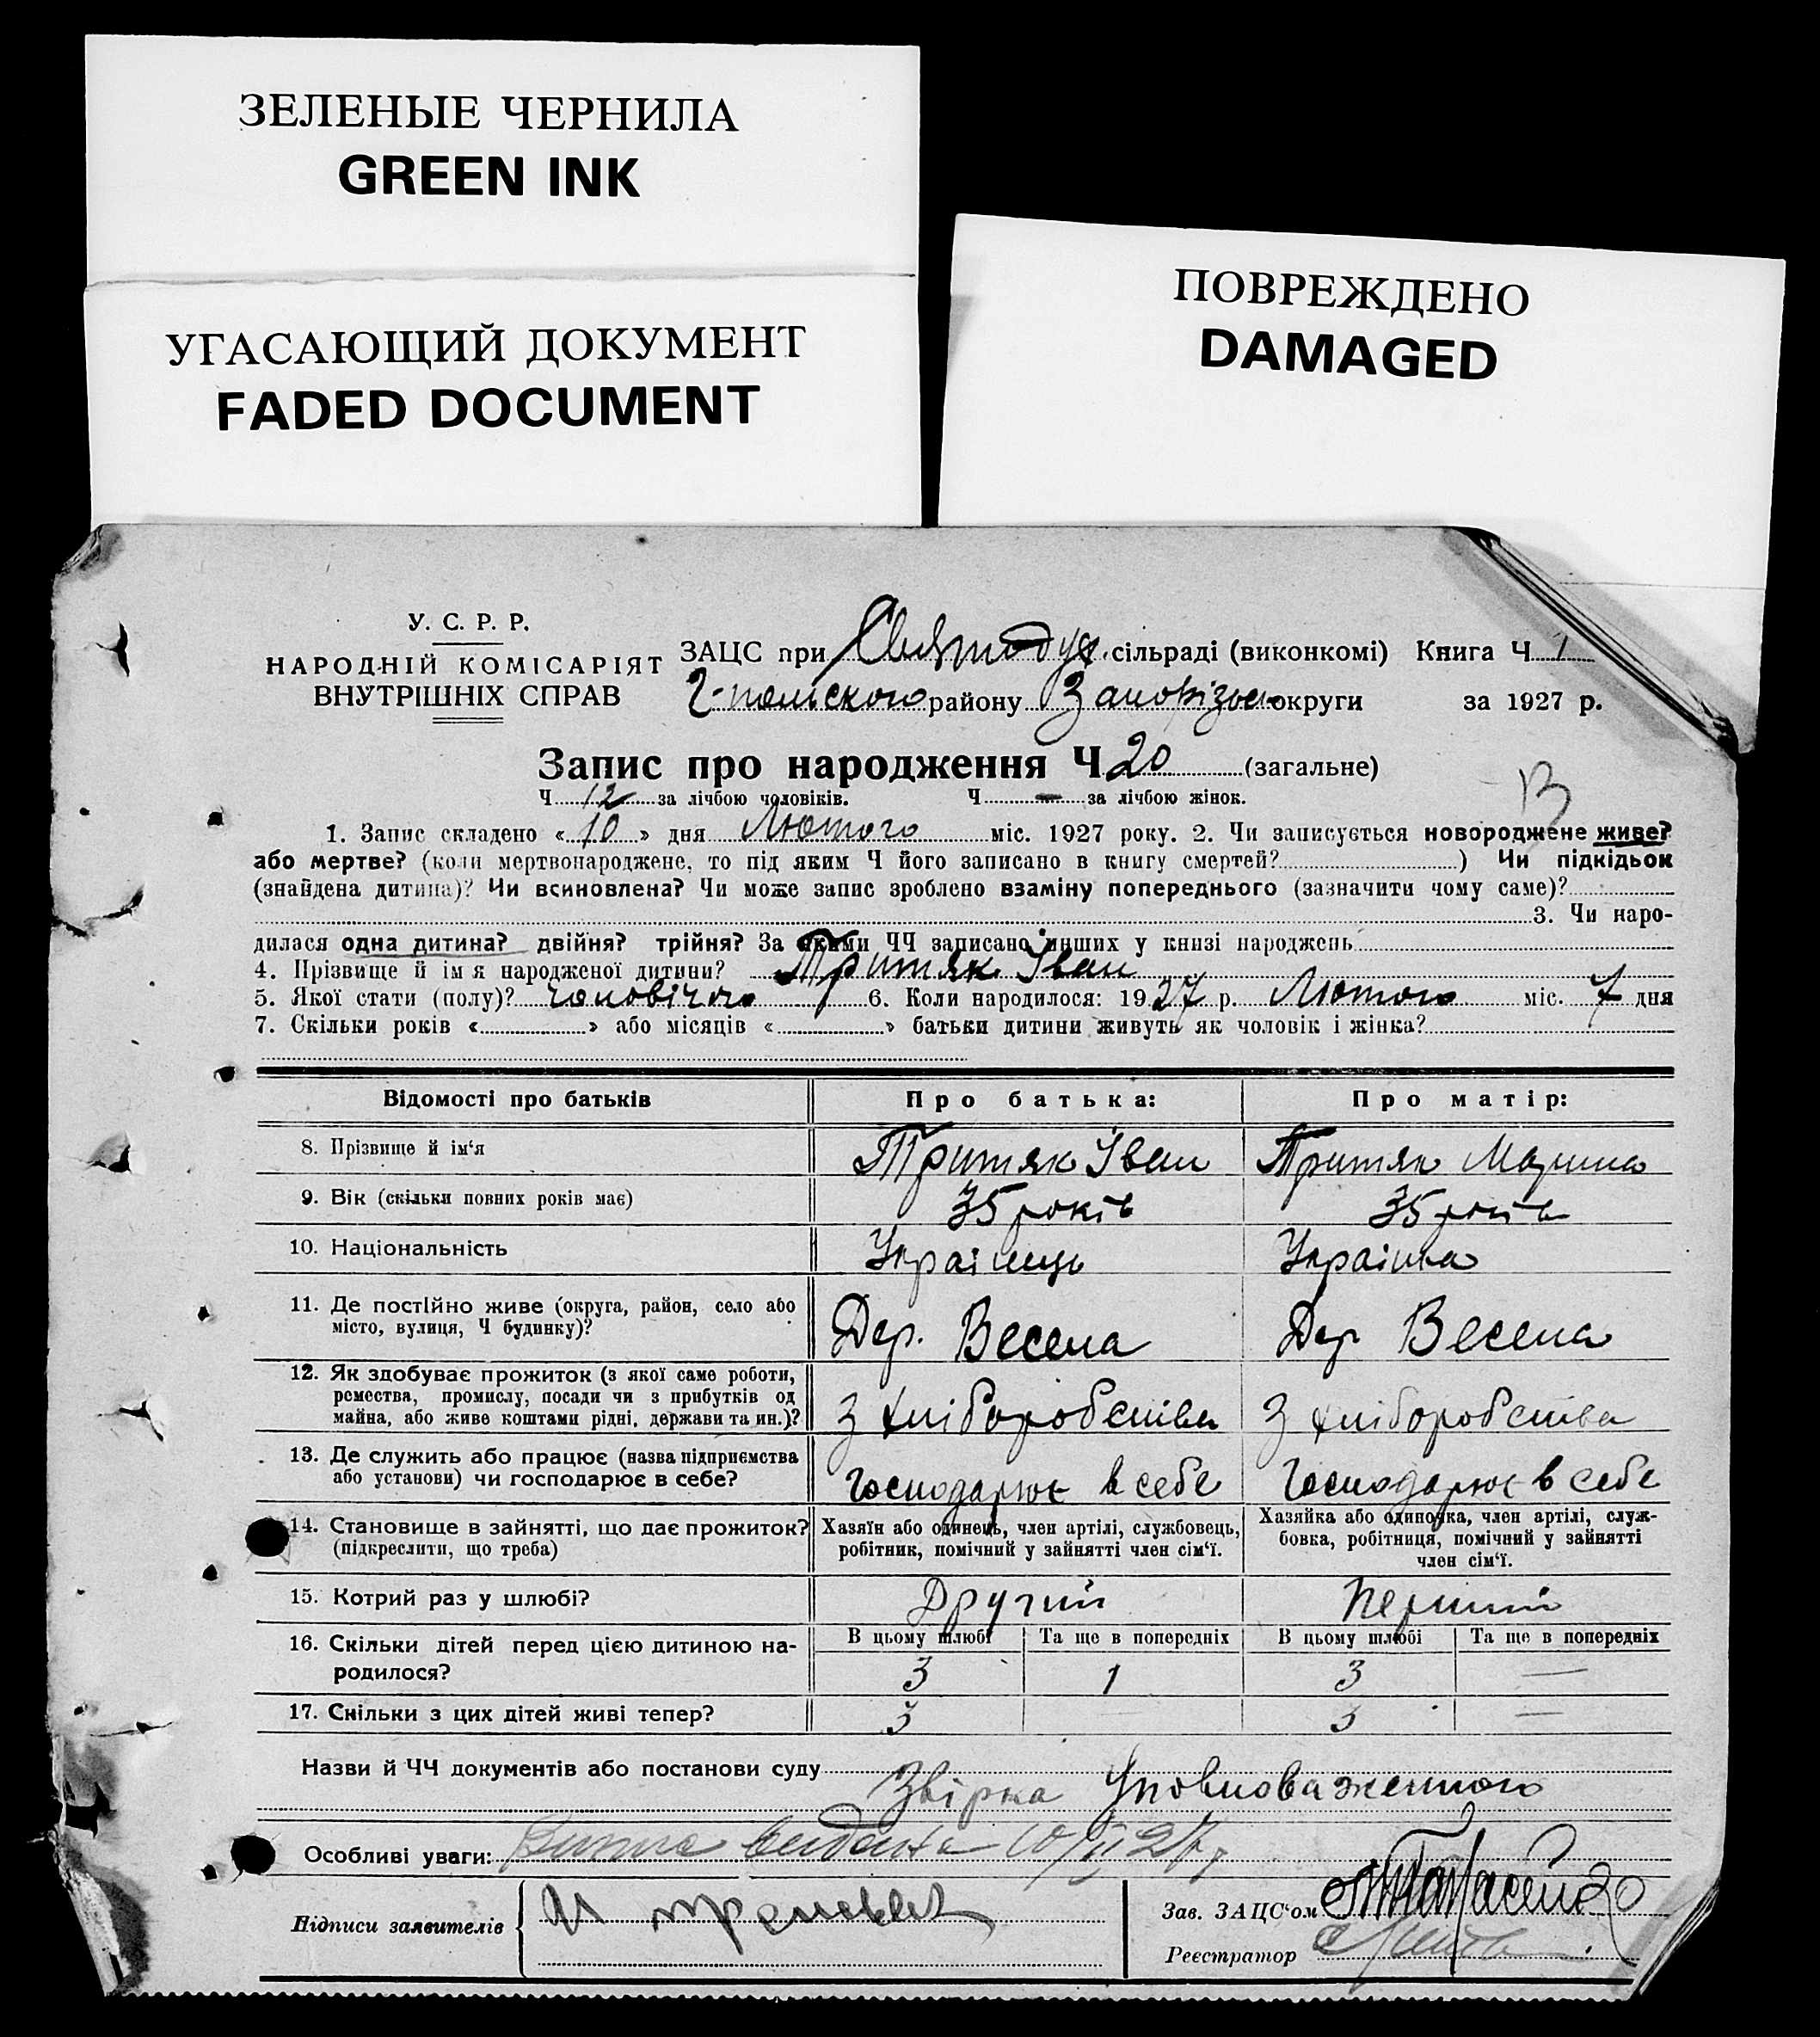 ЗЕЛЕНЫЕ ЧЕРНИЛА
GREEN INK
УГАСАЮЩИЙ ДОКУМЕНТ
FADED DOCUMENT
ПОВРЕЖДЕНО
DAMAGED
У. С. Р. Р.
НАРОДНІЙ КОМІСАРІЯТ
ВНУТРІШНІХ СПРАВ
ЗАЦС при Святодух. сільраді (виконкомі) Книга Ч 1
Г-польского району Запоріз округи за 1927 р.
Запис про народження Ч 20 (загальне)
Ч 12 за лічбою чоловіків. Ч — за лічбою жінок.
1. Запис складено « 10 » дня Лютого міс. 1927 року. 2. Чи записується новороджене живе?
або мертве? (коли мертвонароджене, то під яким Ч його записано в книгу смертей? ) Чи підкідьок
(знайдена дитина)? Чи всиновлена? Чи може запис зроблено взаміну попереднього (зазначити чому саме)?
3. Чи наро-
дилася одна дитина? двійня? трійня? За якими ЧЧ записано инших у книзі народжень
4. Прізвище й ім я народженої дитини? Притяк Іван
5. Якої стати (полу)? чоловічого 6. Коли народилося: 1927 р. Лютого міс. 7 дня
7. Скільки років « » або місяців « » батьки дитини живуть як чоловік і жінка?
Відомості про батьків Про батька: Про матір:
8. Прізвище й ім‘я Притяк Іван Притяк Марина
9. Вік (скільки повних років має) 35 років 35 років
10. Національність Українець Українка
11. Де постійно живе (округа, район, село або
місто, вулиця, Ч будинку)? Дер. Весела Дер Весела
12. Як здобуває прожиток (з якої саме роботи,
ремества, промислу, посади чи з прибутків од
майна, або живе коштами рідні, держави та ин.)? З хліборобства З хліборобства
13. Де служить або працює (назва підприємства
або установи) чи господарює в себе? Господарює в себе Господарює в себе
14. Становище в зайнятті, що дає прожиток?
(підкреслити, що треба)
Хазяїн або одинець, член артілі, службовець,
робітник, помічний у зайнятті член сім‘ї.
Хазяйка або одиночка, член артілі, служ-
бовка, робітниця, помічний у зайнятті
член сім‘ї.
15. Котрий раз у шлюбі? Другий Перший
16. Скільки дітей перед цією дитиною на-
родилося?
В цьому шлюбі Та ще в попередніх В цьому шлюбі Та ще в попередніх
3 1 3 —
17. Скільки з цих дітей живі тепер? 3 — 3 —
Назви й ЧЧ документів або постанови суду
Звірка Уповноваженного
Особливі уваги: видана 10/II 27 р
Підписи заявителів
Зав. ЗАЦС‘ом
Реєстратор